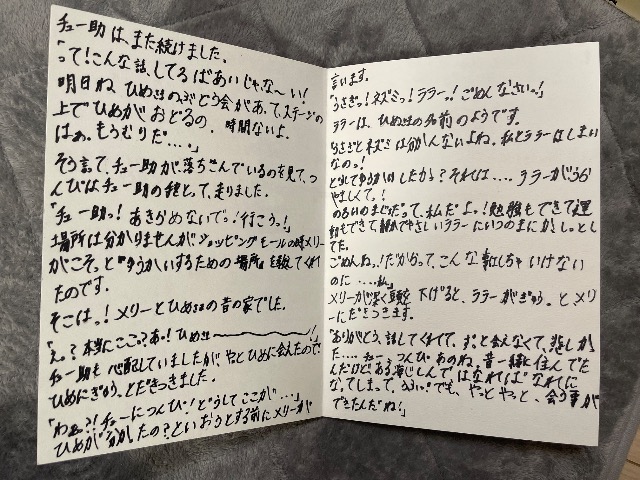 チュー助は、また続けました。
「って!こんな話、してるばあいじゃな〜い!
明日ね ひめのぶどう会があって、ステージの
上でひめがおどるの。時間ないよ。
はぁ、もうむりだ…。」
そう言って、チュー助が、落ちこんでいるのを見て、つ
んぴはチュー助の手をとって、走りました。
「チュー助っ!あきらめないでっ!行こうっ!」
場所は分かりませんがショッピングモールの時メリー
がこそっと『ゆうかいするための場所』を教えてくれ
たのです。
そこはっ!メリーとひめの昔の家でした。
「え?本当にここ?あっ!ひめ〜〜〜!」
チュー助も心配していましたが、やっとひめに会えたので
ひめにぎゅうっとだきつきました。
「わぁ?!チューにつんぴ!どうしてここが…」
ひめが「分かったの?」といおうとする前にメリーが
言います。
「うさぎっ!ネズミっ!ララーっ!ごめんなさいっ!」
ララーは、ひめの名前のようです。
「うさぎとネズミは分かんないよね。私とララーはしまい
なのっ!
どうしてゆうかいしたかって?それは…。ララーがうらや
やましくて。!
のろいのまじょだって、私だよっ!勉強もできて運
動もできて静かでやさしいララーにいつのまにかしっとし
てた。
ごめんねっ!だからって、こんな事しちゃいけない
のに…。私」
メリーが深く頭を下げると、ララーがぎゅっとメリ
ーにだきつきます。
「ありがとう、話してくれて。ずっと会えなくて、悲しかっ
た…。チュー、つんぴ、あのね、昔一緒に住んでた
んだけど、ある事じけんではなればなれに
なってしまって。うふっ!でも、やっとやっと、会う事が
できたんだね!」